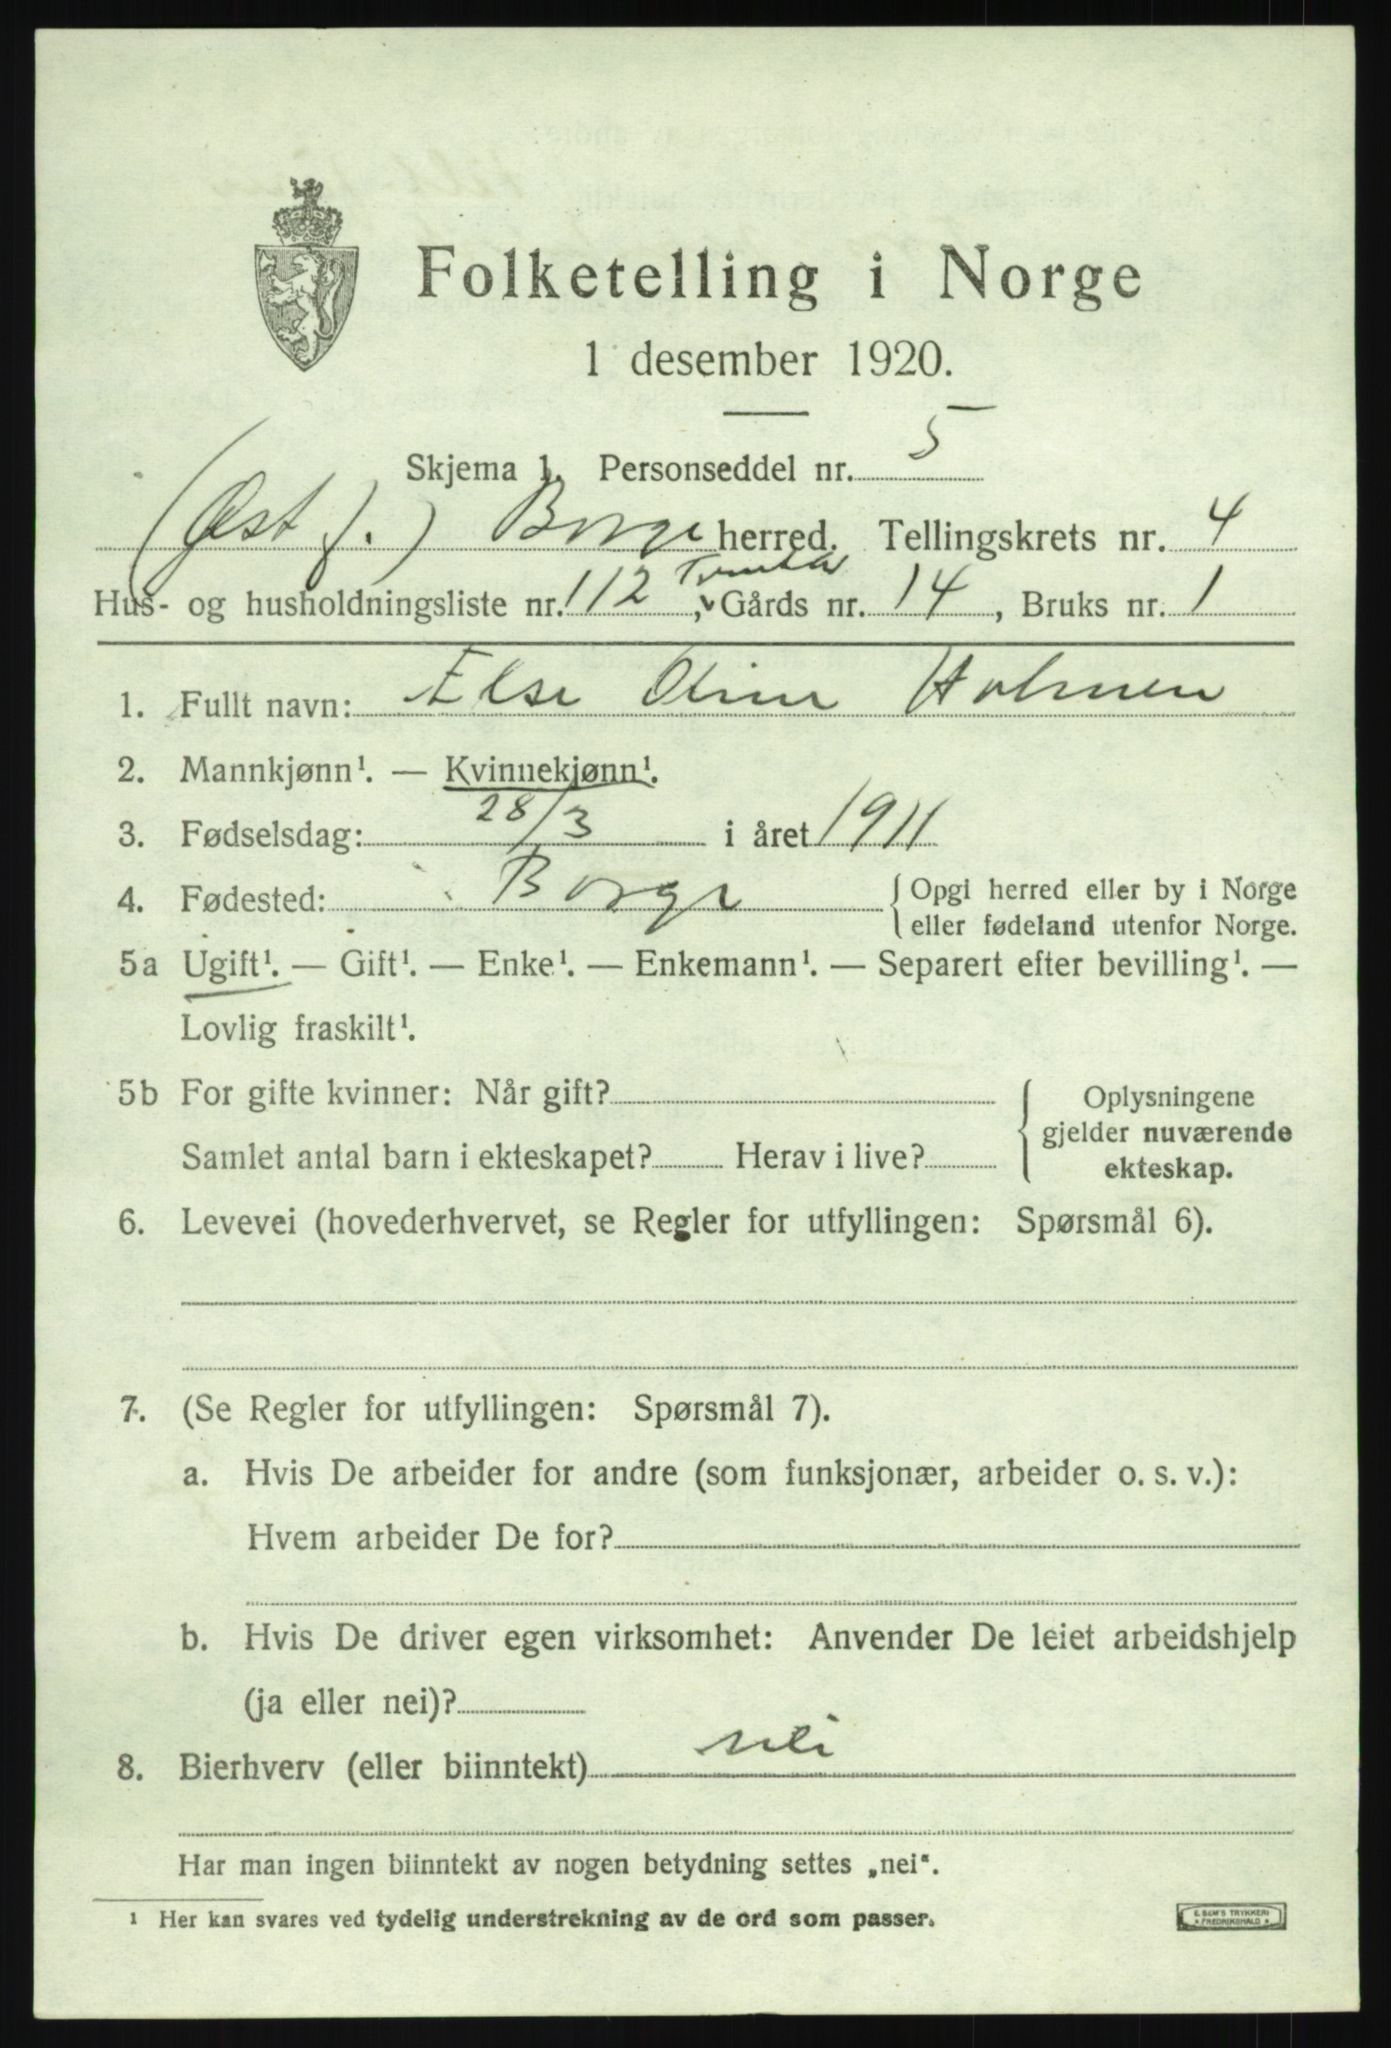 Folketelling i Norge
1 desember 1920.
Skjema 1. Personseddel nr. 5
(Østf.) Borge herred. Tellingskrets nr. 4
Hus- og husholdningsliste nr. 112, Gårds nr. 14, Bruks nr. 1
1. Fullt navn: Else Oline Holmen
2. Mannkjønn¹. — Kvinnekjønn¹.
3. Fødselsdag: 28/3 i året 1911
4. Fødested: Borge { Opgi herred eller by i Norge
eller fødeland utenfor Norge.
5a Ugift¹. — Gift¹. — Enke¹. — Enkemann¹. — Separert efter bevilling¹. —
Lovlig fraskilt¹.
5b For gifte kvinner: Når gift? { Oplysningene
gjelder nuværende
Samlet antal barn i ekteskapet? Herav i live? ekteskap.
6. Levevei (hovederhvervet, se Regler for utfyllingen: Spørsmål 6).
7. (Se Regler for utfyllingen: Spørsmål 7).
a. Hvis De arbeider for andre (som funksjonær, arbeider o. s. v.):
Hvem arbeider De for?
b. Hvis De driver egen virksomhet: Anvender De leiet arbeidshjelp
(ja eller nei)?
8. Bierhverv (eller biinntekt) nei
Har man ingen biinntekt av nogen betydning settes „nei“.
¹ Her kan svares ved tydelig understrekning av de ord som passer.
E. SEM'S TRYKKERI
* FREDRIKSHALD *